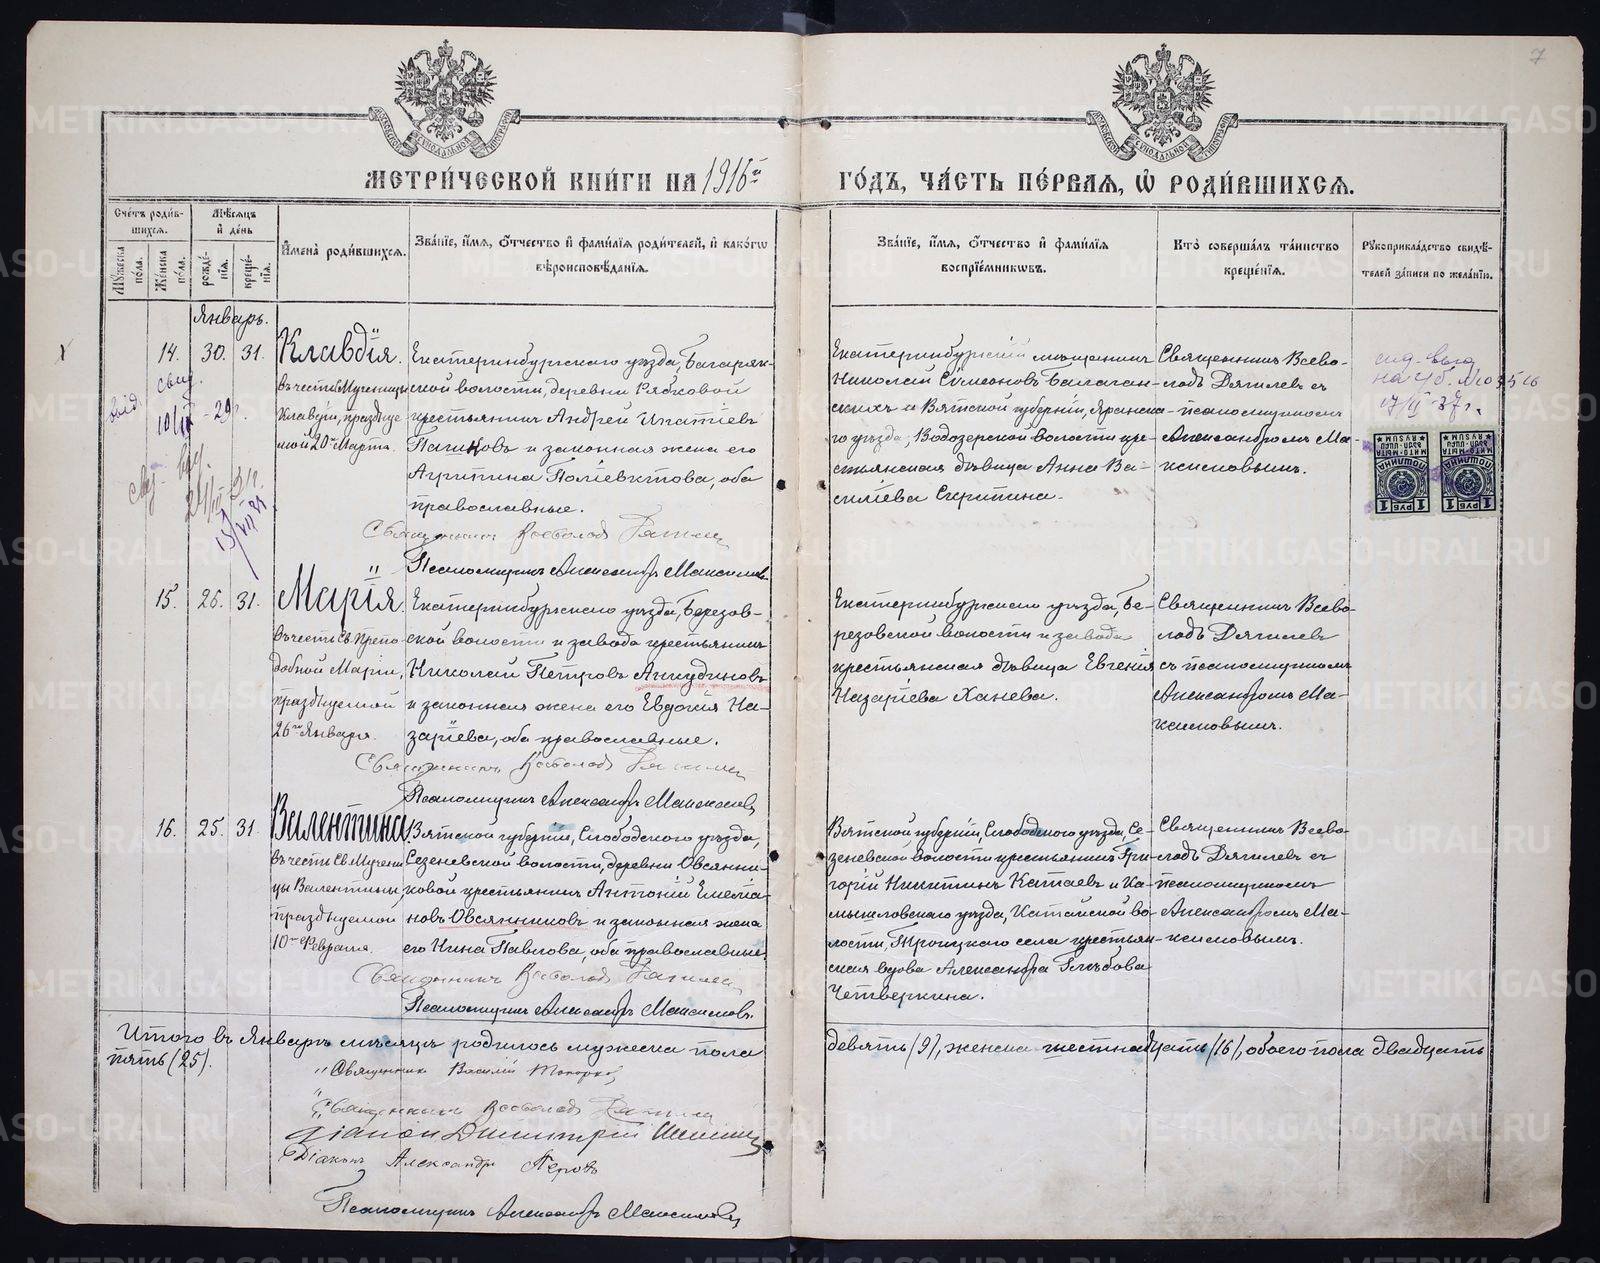 7
МЕТРИ́ЧЕСКОЙ КНИ́ГИ НА 1916й ГО́ДЪ, ЧА́СТЬ ПЕ́РВАЯ, Ѡ҆ РОДИ́ВШИХСЯ.
Сче́тъ роди́в-
шихся.
Му́жеска
по́ла.
Же́нска
по́ла.
Мѣ́сяцъ
и҆ де́нь
рожде́-
нїя.
креще́-
нїя.
И҆мена̀ роди́вшихся.
Зва́нїе, и҆́мя, ѻ҆́тчество и҆ фами́лїя роди́телей, и҆ како́гѡ
вѣроисповѣ́данїя.
Зва́нїе, и҆́мя, ѻ҆́тчество и҆ фами́лїя
воспрїе́мникѡвъ.
Кто̀ соверша́лъ та́инство
креще́нїя.
Рꙋкоприкла́дство свидѣ́-
телей за́писи по жела́нїю.
Январь.
14. 30. 31.
Клавдія.
въ честь Мученицы
Клавдіи, празднуе
мой 20го Марта.
Екатеринбургскаго уѣзда, Багаряк-
ской волости, деревни Рябковой
крестьянинъ Андрей Ипатіевъ
и законная жена его
Агрипина Поліевктова, оба
православные.
Священникъ Всеволодъ Дягилев
Псаломщикъ Александръ Максимовъ
Екатеринбургскій мѣщанинъ
Николай Сѵмеоновъ Балаган-
скихъ и Вятской губерніи, Яранска-
го уѣзда, Водозерской волости кре-
стьянская дѣвица Анна Ва-
силіева Скрипина.
Священникъ Всево-
лодъ Дягилевъ съ
псаломщикомъ
Александромъ Ма-
ксимовымъ.
свид.
10/IV - 29г.
17/II-37г.
1 РУБ
ПОШЛИНА
1 РУБ
ПОШЛИНА
15. 26. 31.
Марія.
въ честь Св. Препо-
добной Маріи,
празднуемой
26го Января.
Екатеринбургскаго уѣзда, Березов-
ской волости и завода крестьянинъ
Николай Петровъ Анкудиновъ
и законная жена его Евдокія На-
заріева, оба православные.
Священникъ Всеволодъ Дягилев
Псаломщикъ Александръ Максимовъ
Екатеринбургскаго уѣзда, Бе-
резовской волости и завода
крестьянская дѣвица Евгенія
Назаріева Ханева.
Священникъ Всево-
лодъ Дягилевъ
съ псаломщикомъ
Александромъ Ма-
ксимовымъ.
16. 25. 31.
Валентина.
въ честь Св. Мучени
цы Валентины,
празднуемой
10го Февраля.
Вятской губерніи, Слободского уѣзда,
Сезеневской волости, деревни Овсянни-
ковой крестьянинъ Антоній Емеліа-
новъ Овсянниковъ и законная жена
его Нина Павлова, оба православные.
Священникъ Всеволодъ Дягилев
Псаломщикъ Александръ Максимовъ.
Вятской губерніи, Слободского уѣзда, Се-
зеневской волости крестьянинъ Гри-
горій Никитинъ Катаевъ и Ка-
мышловскаго уѣзда, Катайской во-
лости, Троицкаго села крестьян-
ская вдова Александра Глѣбова
Четверкина.
Священникъ Всево-
лодъ Дягилевъ съ
псаломщикомъ
Александромъ Ма-
ксимовымъ.
Итого въ Январѣ мѣсяцѣ родилось мужеска пола девять /9/, женска шестнадцать /16/, обоего пола двадцать
пять (25).
Священникъ Василій
Священникъ Всеволодъ Дягилев
Діаконъ Димитрій
Діаконъ Александръ
Псаломщикъ Александръ Максимовъ
METRIKI.GASO-URAL.RU